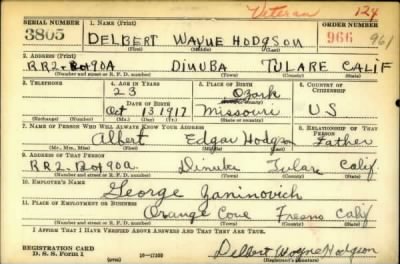 Veteran 124
SERIAL NUMBER 1. NAME (Print) ORDER NUMBER
3805 DELBERT WAYNE HODGSON 966 961
(First) (Middle) (Last)
2. ADDRESS (Print)
RR2-Box 90A DINUBA TULARE CALIF
(Number and street or R. F. D. number) (Town) (County) (State)
3. TELEPHONE 4. AGE IN YEARS 5. PLACE OF BIRTH 6. COUNTRY OF CITIZENSHIP
23 Ozark
DATE OF BIRTH (Town or county)
Oct 13 1917 Missouri US
(Exchange) (Number) (Mo.) (Day) (Yr.) (State or country)
7. NAME OF PERSON WHO WILL ALWAYS KNOW YOUR ADDRESS 8. RELATIONSHIP OF THAT PERSON
Albert Edgar Hodgson Father
(Mr., Mrs., Miss) (First) (Middle) (Last)
9. ADDRESS OF THAT PERSON
RR2-Box 90a. Dinuba Tulare Calif.
(Number and street or R. F. D. number) (Town) (County) (State)
10. EMPLOYER'S NAME
George Zaninovich
11. PLACE OF EMPLOYMENT OR BUSINESS
Orange Cove Fresno Calif
(Number and street or R. F. D. number) (Town) (County) (State)
I AFFIRM THAT I HAVE VERIFIED ABOVE ANSWERS AND THAT THEY ARE TRUE.
REGISTRATION CARD
D. S. S. Form 1 16-17105 Delbert Wayne Hodgson
(Registrant's signature)